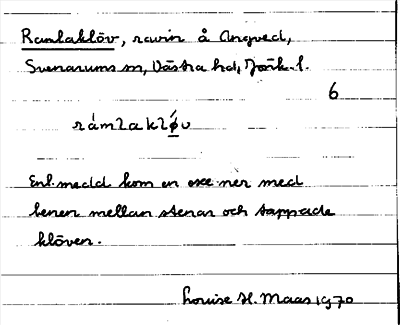 Ramlaklöv, ravin å Angved,
Svenarums sn, Västra hd, Jönk. l.
6
rámlaklø̀v
Enl. medd kom en oxe ner med
benen mellan stenar och tappade
klöven.
Louise H. Maas 1970